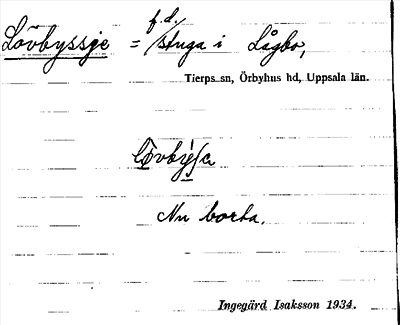 Lövbyssje = f.d. stuga i Lågbo,
Tierps sn, Örbyhus hd, Uppsala län.
Nu borta.
Ingegärd Isaksson 1934.